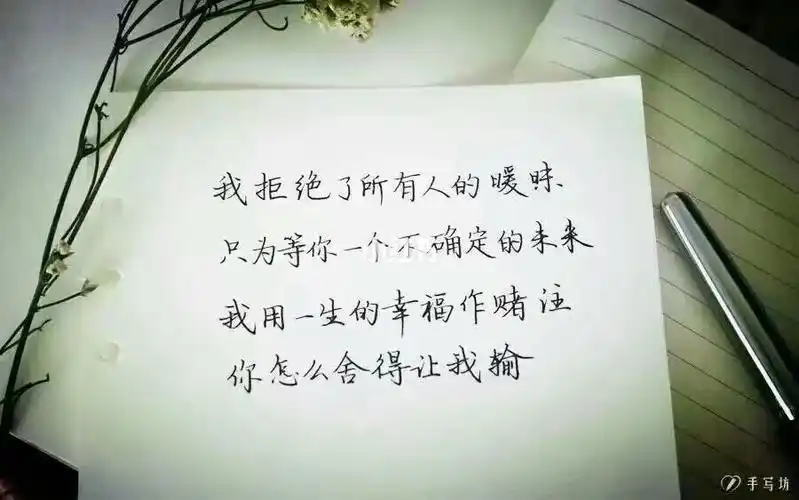 我拒绝了所有人的暧昧
只为等你一个不确定的未来
我用一生的幸福作赌注
你怎么舍得让我输
手写坊